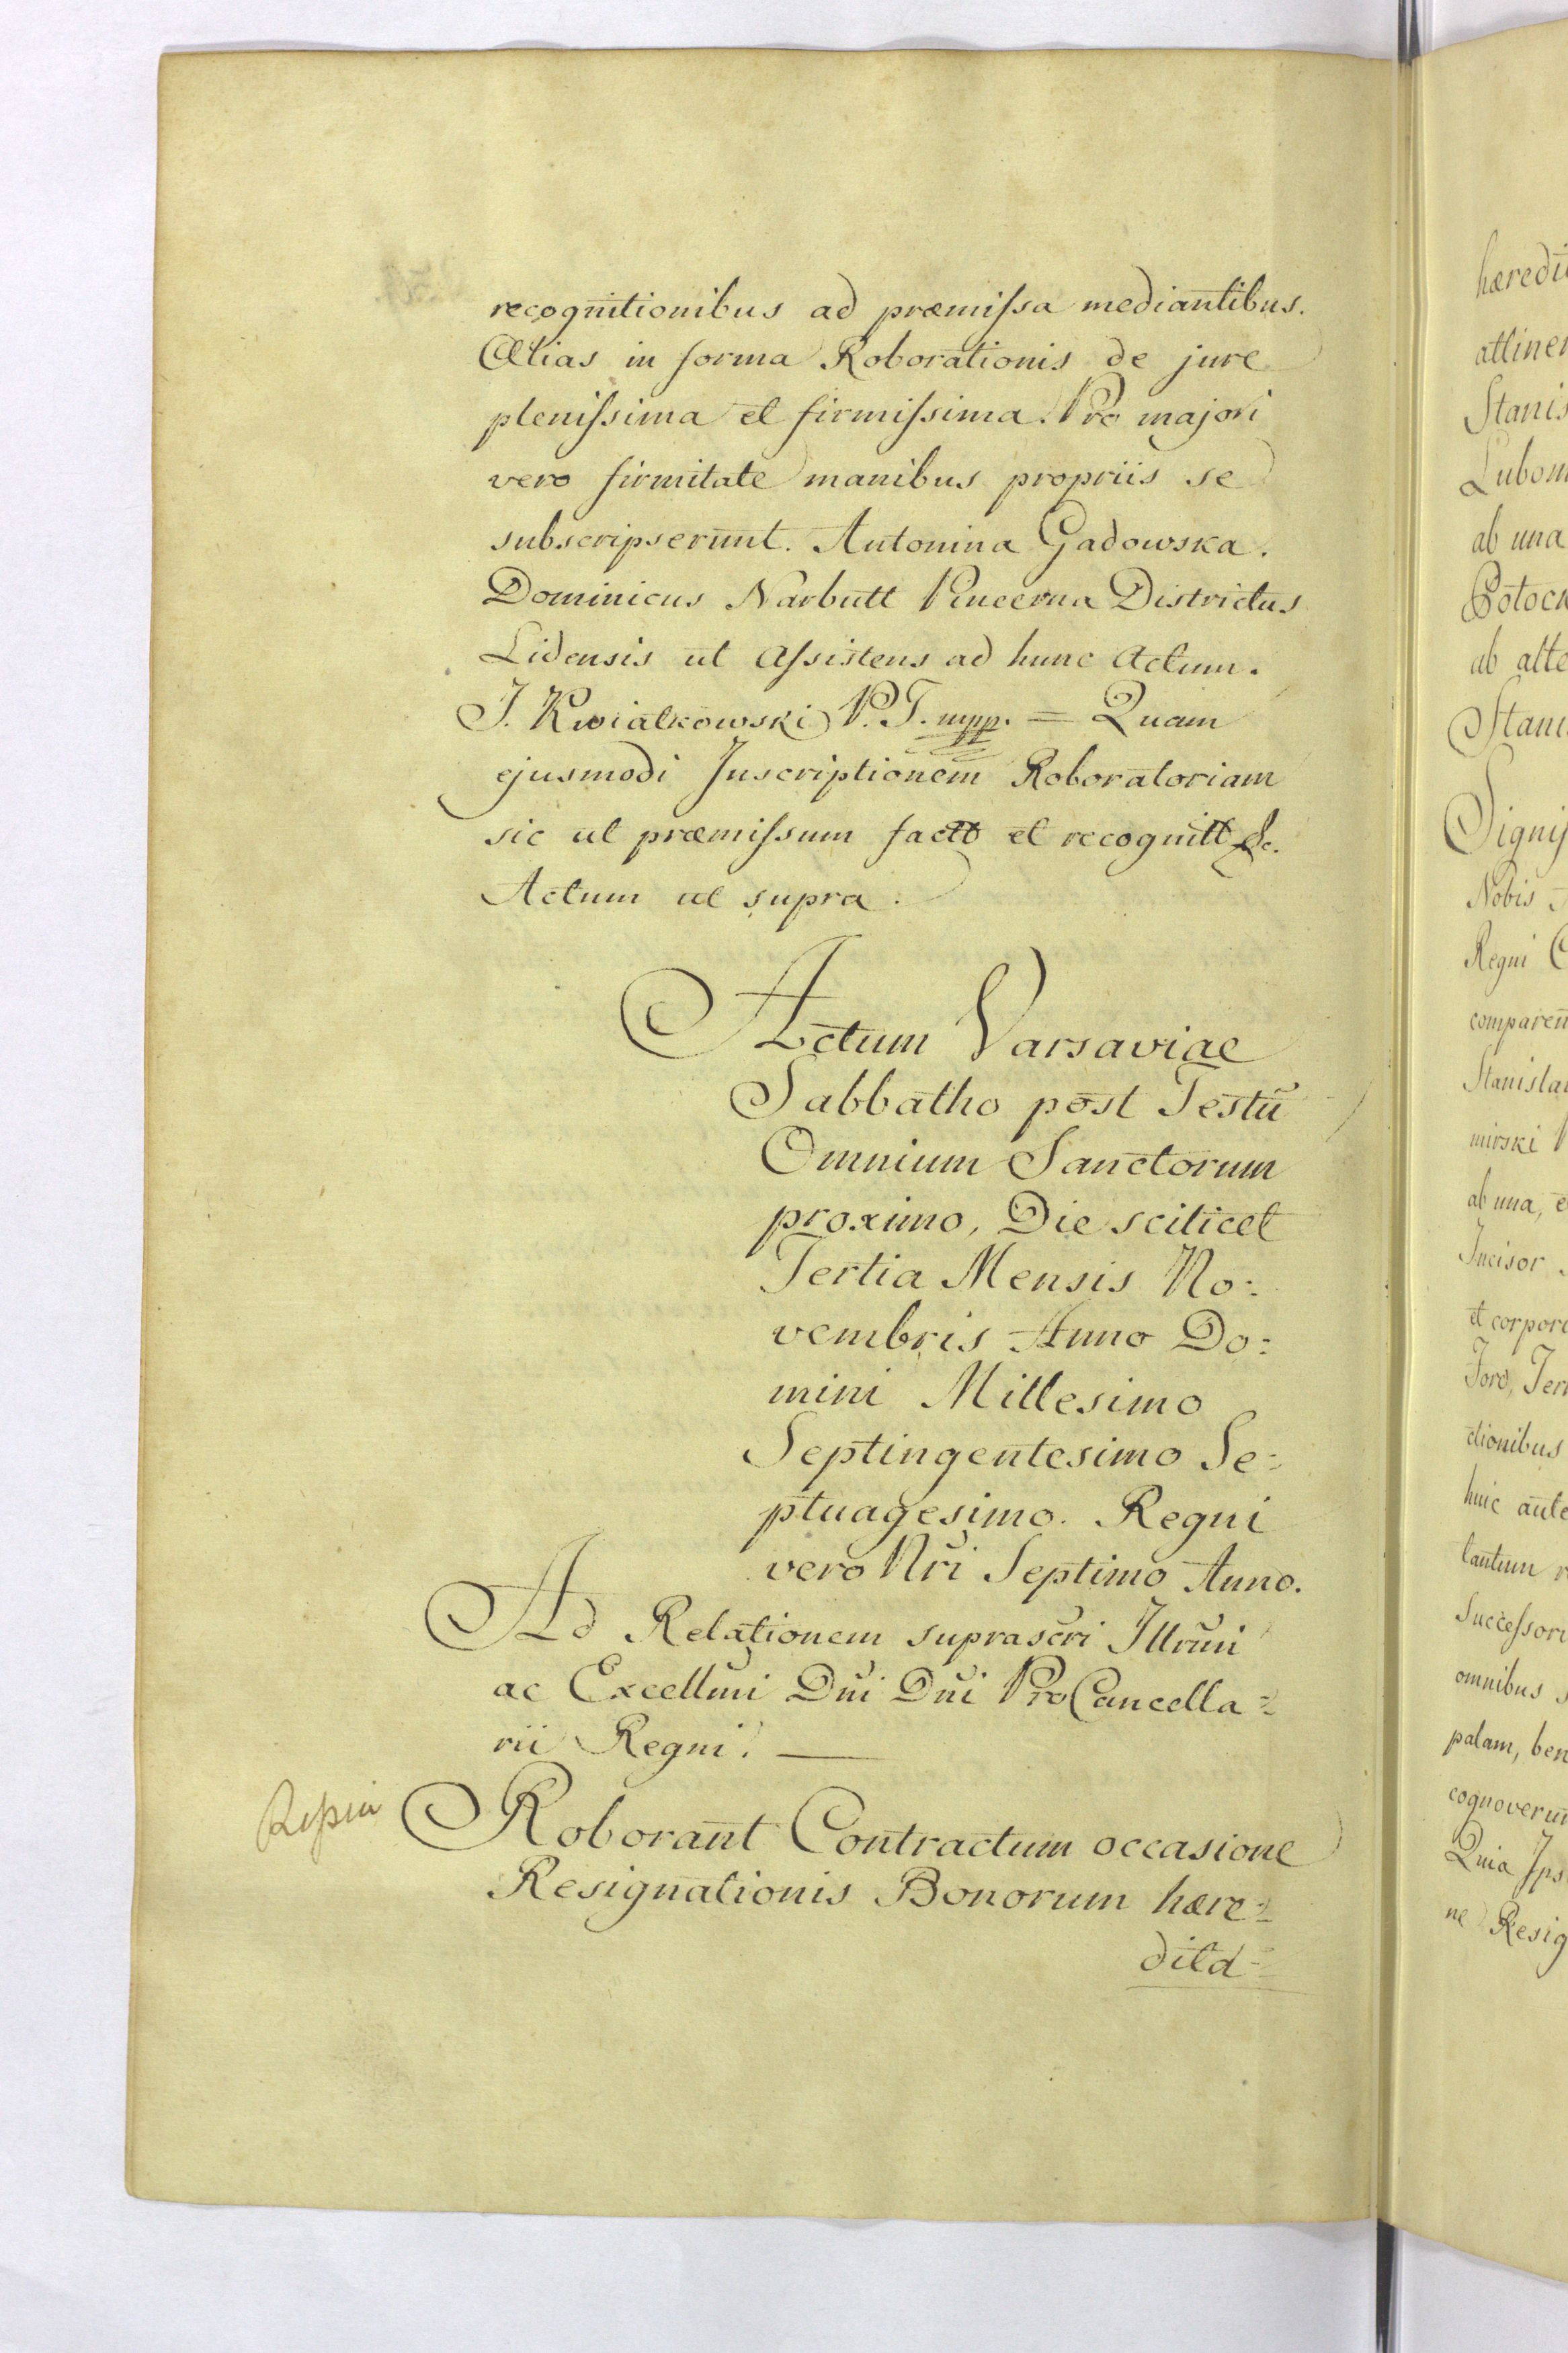 recognitionibus ad præmiſsa mediantibus.
Alias in forma Roborationis de jure
pleniſsima et firmiſsima. Pro majori
vero firmitate manibus propriis se
subscripserunt. Antonina Gadowska.
Dominicus Narbutt Pincerna Districtus
Lidensis ut Aſsistens ad hunc Actum.
J. Kwiatkowski P.T. mpp. = Quam
ejusmodi Inscriptionem Roboratoriam
sic ut præmiſsum factt et recognitt &c.
Actum ut supra.
Actum Varsaviae
Sabbatho post Festū
Omnium Sanctorum
proximo, Die scilicet
Tertia Mensis No:
vembris Anno Do:
mini Millesimo
Septingentesimo Se:
ptuagesimo. Regni
vero Nri Septimo Anno.
Ad Relationem suprascri Illrmi
ac Excellmi Dni Dni ProCancella:
rii Regni.
Roborant Contractum occasione
Resignationis Bonorum hære:
dita:
hæredi
attinen
Stanis
Lubom
ab una
Potock
ab alte
Stani
Signif
Nobis
Regni
comparen
Stanisla
mirski
ab una, e
Incisor
et corpore
Foro, Ter
ctionibus
huic ante
tantum r
Succeſsori
omnibus s
palam, ben
cognoverun
Quia Ips
ne Resig